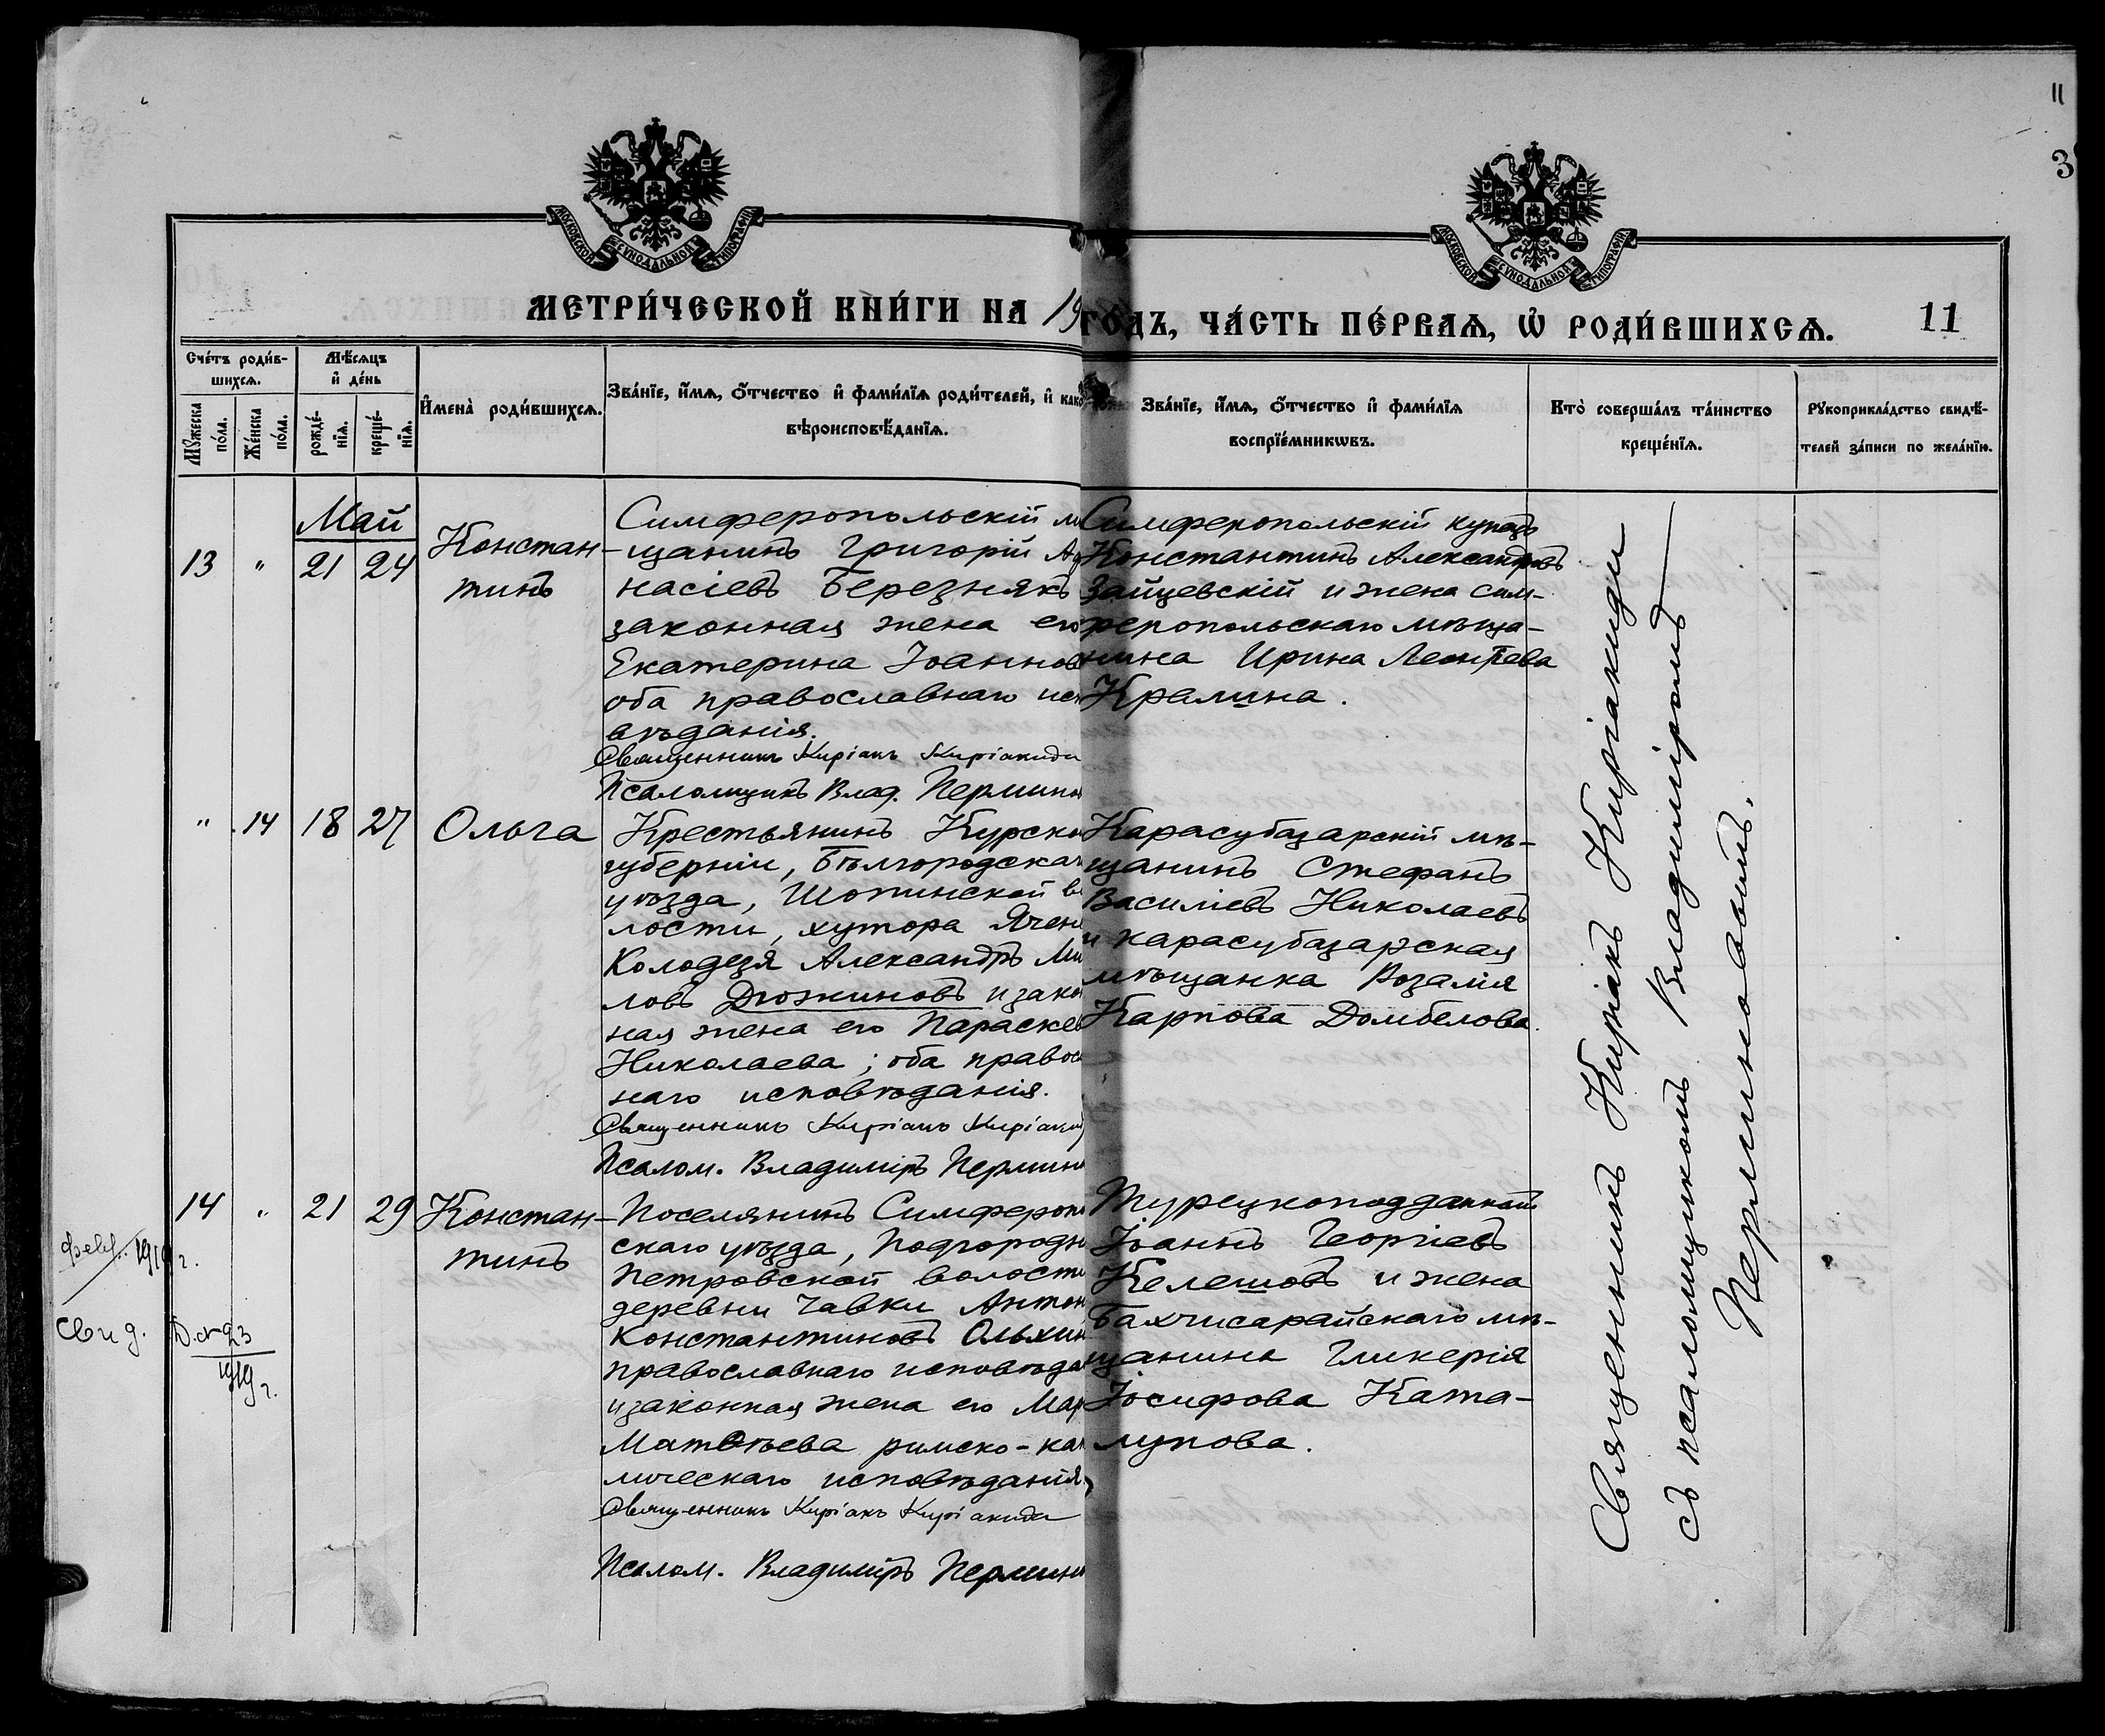 11
3
МОСКОВСКОЙ СѴНОДАЛЬНОЙ ТИПОГРАФІИ
МОСКОВСКОЙ СѴНОДАЛЬНОЙ ТИПОГРАФІИ
МЕТРИ́ЧЕСКОЙ КНИ́ГИ НА 19
ГО́ДЪ, ЧА́СТЬ ПЕ́РВАѦ, Ѡ҆ РОДИ́ВШИХСѦ.
11
Сче́тъ роди́в-
шихсѧ.
Мꙋ́жеска по́ла.
Же́нска по́ла.
Мѣ́сѧцъ
и҆ де́нь
рожде́-
нїѧ.
креще́-
нїѧ.
И҆мена̀ роди́вшихсѧ.
Зва́нїе, и҆́мѧ, ѻ҆́тчество и҆ фами́лїѧ роди́телей, и҆ како
вѣроисповѣ́данїѧ.
Зва́нїе, и҆́мѧ, ѻ҆́тчество и҆ фами́лїѧ
воспрїе́мникѡвъ.
Кто̀ соверша́лъ та́инство
креще́нїѧ.
Рꙋкоприкла́дство свидѣ́-
телей за́писи по жела́нїю.
Май
13 " 21 24
Констан-
тинъ
Симферопольскій м
щанинъ Григорій А
насіевъ Березнякъ
законная жена его
Екатерина Іоаннов
оба православнаго исп
вѣданія.
Священникъ Киріакъ Киріакиди
Псаломщикъ Влад. Пермино
Симферопольскій купецъ
Константинъ Александровъ
Зайцевскій и жена сим-
феропольскаго мѣща-
нина Ирина Леонтьева
Кралина.
" 14 18 27
Ольга
Крестьянинъ Курско
губерніи, Бѣлгородскаг
уѣзда, Шопинской во
лости, хутора Ячне
Колодезя Александръ Ми
ловъ Дюжиновъ и зако
ная жена его Параскев
Николаева; оба правос
наго исповѣданія.
Священникъ Киріакъ Киріакид
Псалом. Владиміръ Пермин
Карасубазарскій мѣ-
щанинъ Стефанъ
Василіевъ Николаевъ
и карасубазарская
мѣщанка Розалія
Карпова Домбелова.
14 " 21 29
Констан-
тинъ
Поселянинъ Симфероп
скаго уѣзда, Подгородн
Петровской волости
деревни Чавки Антон
Константиновъ Ольхин
православнаго исповѣда
и законная жена его Мар
Матѳѣева римско-ка
лическаго исповѣданія,
Священникъ Киріакъ Киріакиди
Псалом. Владиміръ Пермин
Турецкоподданный
Іоаннъ Георгіевъ
Келешовъ и жена
Бахчисарайскаго мѣ-
щанина Гликерія
Іосифова Ката-
лупова.
Священникъ Киріакъ Киріакиди
съ псаломщикомъ Владиміромъ
Перминовымъ.
Свид.
23
1919 г.